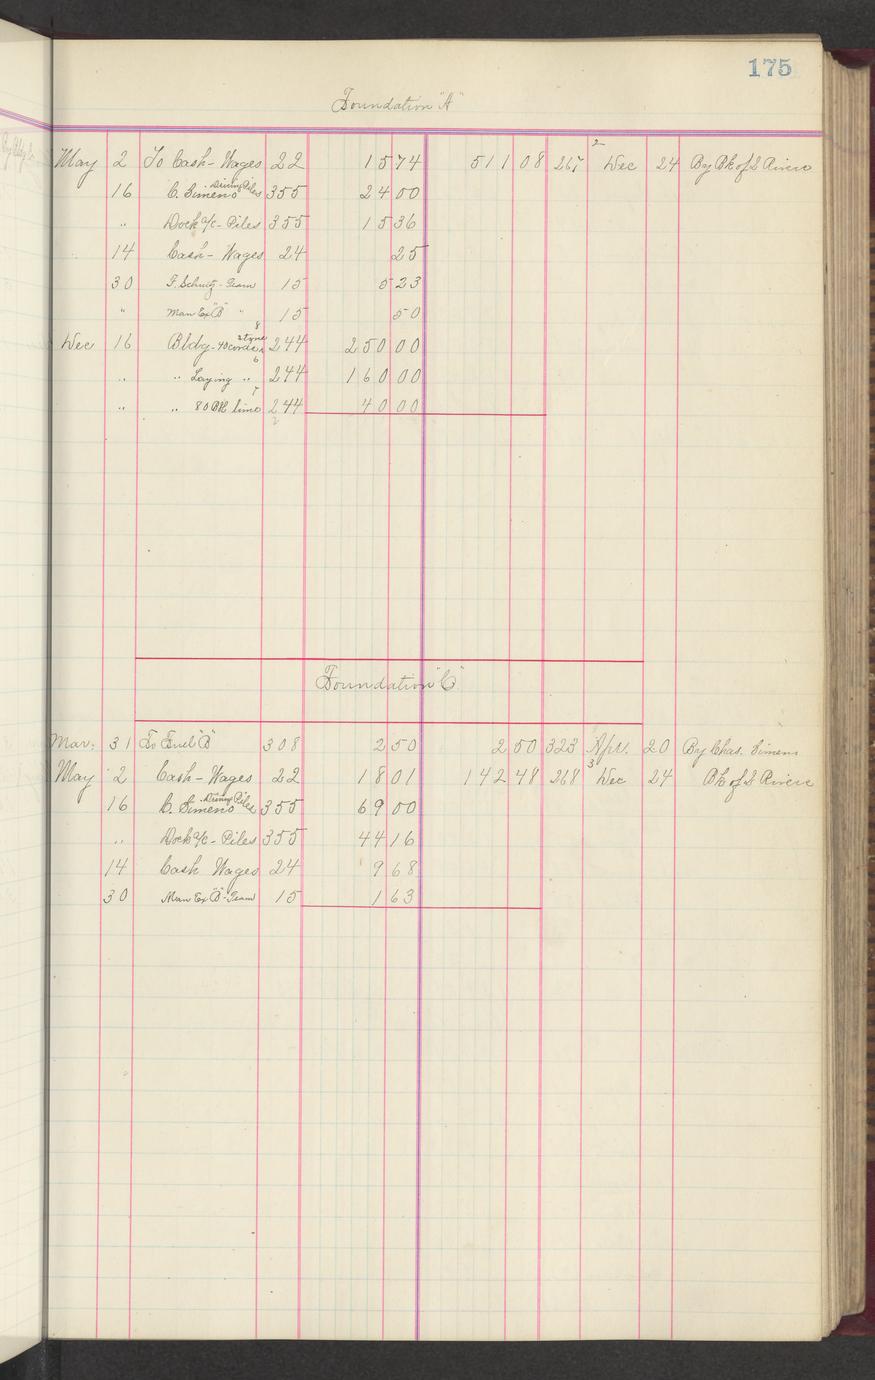 175
Foundation "A"
May 2 To Cash - Wages 22 15 74 511 08 267 2 Dec 24 By Bk of 2 Rivers
16 C. Simeno Driving Piles 355 24 00
" Dock a/c - Piles 355 15 36
14 Cash - Wages 24 25
30 F. Schultz - Team 15 5 23
" Man Ex "B" " 15 50
Dec 16 Bldg - 40 cords stone 8 244 250 00
" " Laying " 6 244 160 00
" " 80 Bbl lime 7 244 40 00
2
Foundation "C"
Mar. 31 To Fuel "B" 308 2 50 2 50 323 Apr. 20 By Chas. Simens
May 2 Cash - Wages 22 18 01 142 48 268 3 Dec 24 Bk of 2 Rivers
16 C. Simeno Driving Piles 355 69 00
" Dock a/c - Piles 355 44 16
14 Cash Wages 24 9 68
30 Man Ex "B" - Team 15 1 63